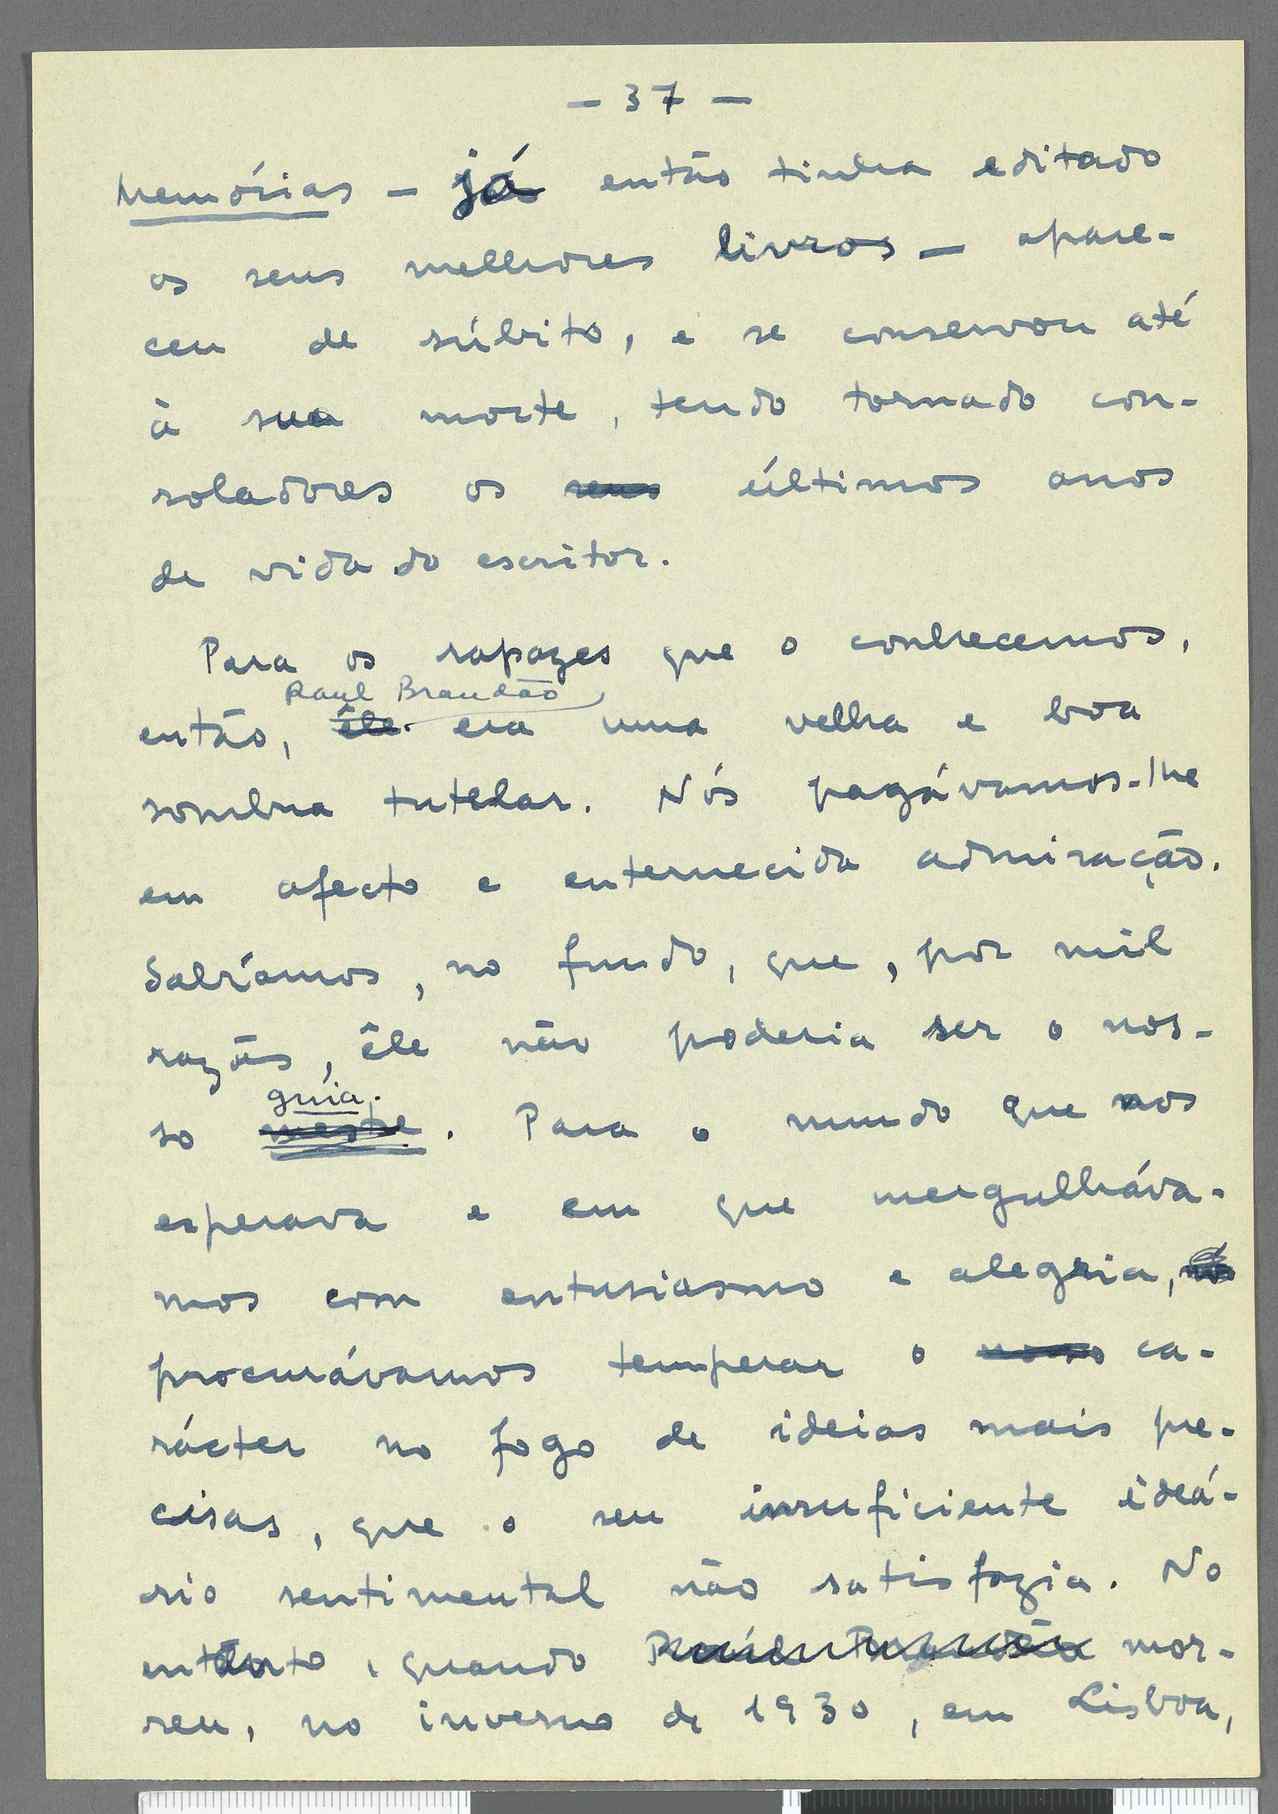 — 37 —
Memórias — já então tinha editado
os seus melhores livros — apare-
ceu de súbito, e se conservou até
à sua morte, tendo tornado con-
soladores os seus últimos anos
de vida do escritor.
Para os rapazes que o conhecemos,
Raul Brandão
então, êle era uma velha e boa
sombra tutelar. Nós pagávamos-lhe
em afecto e enternecida admiração.
Sabíamos, no fundo, que, por mil
razões, êle não poderia ser o nos-
guia.
so mestre. Para o mundo que nos
esperava e em que mergulháva-
mos com entusiasmo e alegria,
procurávamos temperar o nosso ca-
rácter no fogo de ideias mais pre-
cisas, que o seu insuficiente ideá-
rio sentimental não satisfazia. No
entanto, quando Raúl Brandão mor-
reu, no inverno de 1930, em Lisboa,